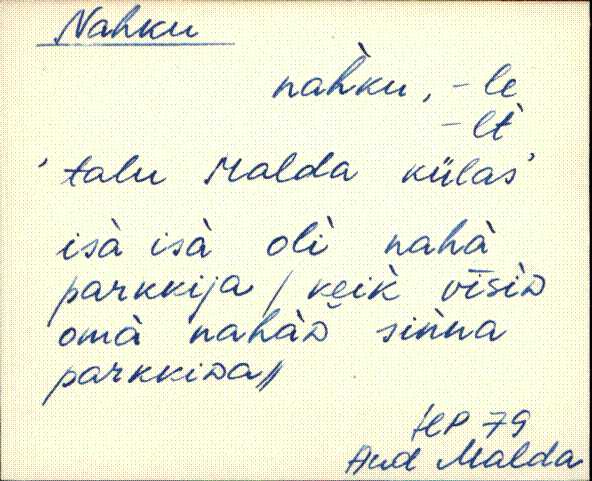 Nahku
nah̀ku, -le
-lt̀
'talu Malda külas'
isà isà olì nahà
parkkija / keik̀ vīsiᴅ
omà nahàᴅ sin̆na
parkkiᴅa //
HP 79
Aud Malda